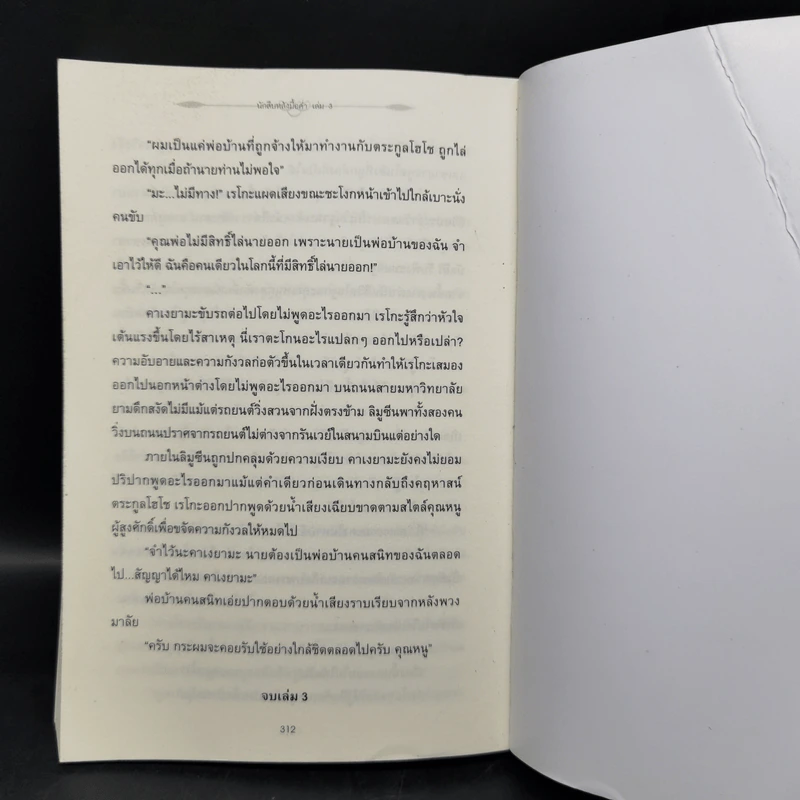 นักสืบหลังมื้อค่ำ เล่ม 3
"ผมเป็นแค่พ่อบ้านที่ถูกจ้างให้มาทำงานกับตระกูลโฮโช ถูกไล่
ออกได้ทุกเมื่อถ้านายท่านไม่พอใจ"
"มะ...ไม่มีทาง!" เรโกะแผดเสียงขณะชะโงกหน้าเข้าไปใกล้เบาะนั่ง
คนขับ
"คุณพ่อไม่มีสิทธิ์ไล่นายออก เพราะนายเป็นพ่อบ้านของฉัน จำ
เอาไว้ให้ดี ฉันคือคนเดียวในโลกนี้ที่มีสิทธิ์ไล่นายออก!"
"..."
คาเงยามะขับรถต่อไปโดยไม่พูดอะไรออกมา เรโกะรู้สึกว่าหัวใจ
เต้นแรงขึ้นโดยไร้สาเหตุ นี่เราตะโกนอะไรแปลกๆ ออกไปหรือเปล่า?
ความอับอายและความกังวลก่อตัวขึ้นในเวลาเดียวกันทำให้เรโกะเสมอง
ออกไปนอกหน้าต่างโดยไม่พูดอะไรออกมา บนถนนสายมหาวิทยาลัย
ยามดึกสงัดไม่มีแม้แต่รถยนต์วิ่งสวนจากฝั่งตรงข้าม ลิมูซีนพาทั้งสองคน
วิ่งบนถนนปราศจากรถยนต์ไม่ต่างจากรันเวย์ในสนามบินแต่อย่างใด
ภายในลิมูซีนถูกปกคลุมด้วยความเงียบ คาเงยามะยังคงไม่ยอม
ปริปากพูดอะไรออกมาแม้แต่คำเดียวก่อนเดินทางกลับถึงคฤหาสน์
ตระกูลโฮโช เรโกะออกปากพูดด้วยน้ำเสียงเฉียบขาดตามสไตล์คุณหนู
ผู้สูงศักดิ์เพื่อขจัดความกังวลให้หมดไป
"จำไว้นะคาเงยามะ นายต้องเป็นพ่อบ้านคนสนิทของฉันตลอด
ไป...สัญญาได้ไหม คาเงยามะ"
พ่อบ้านคนสนิทเอ่ยปากตอบด้วยน้ำเสียงราบเรียบจากหลังพวง
มาลัย
"ครับ กระผมจะคอยรับใช้อย่างใกล้ชิดตลอดไปครับ คุณหนู"
จบเล่ม 3
312